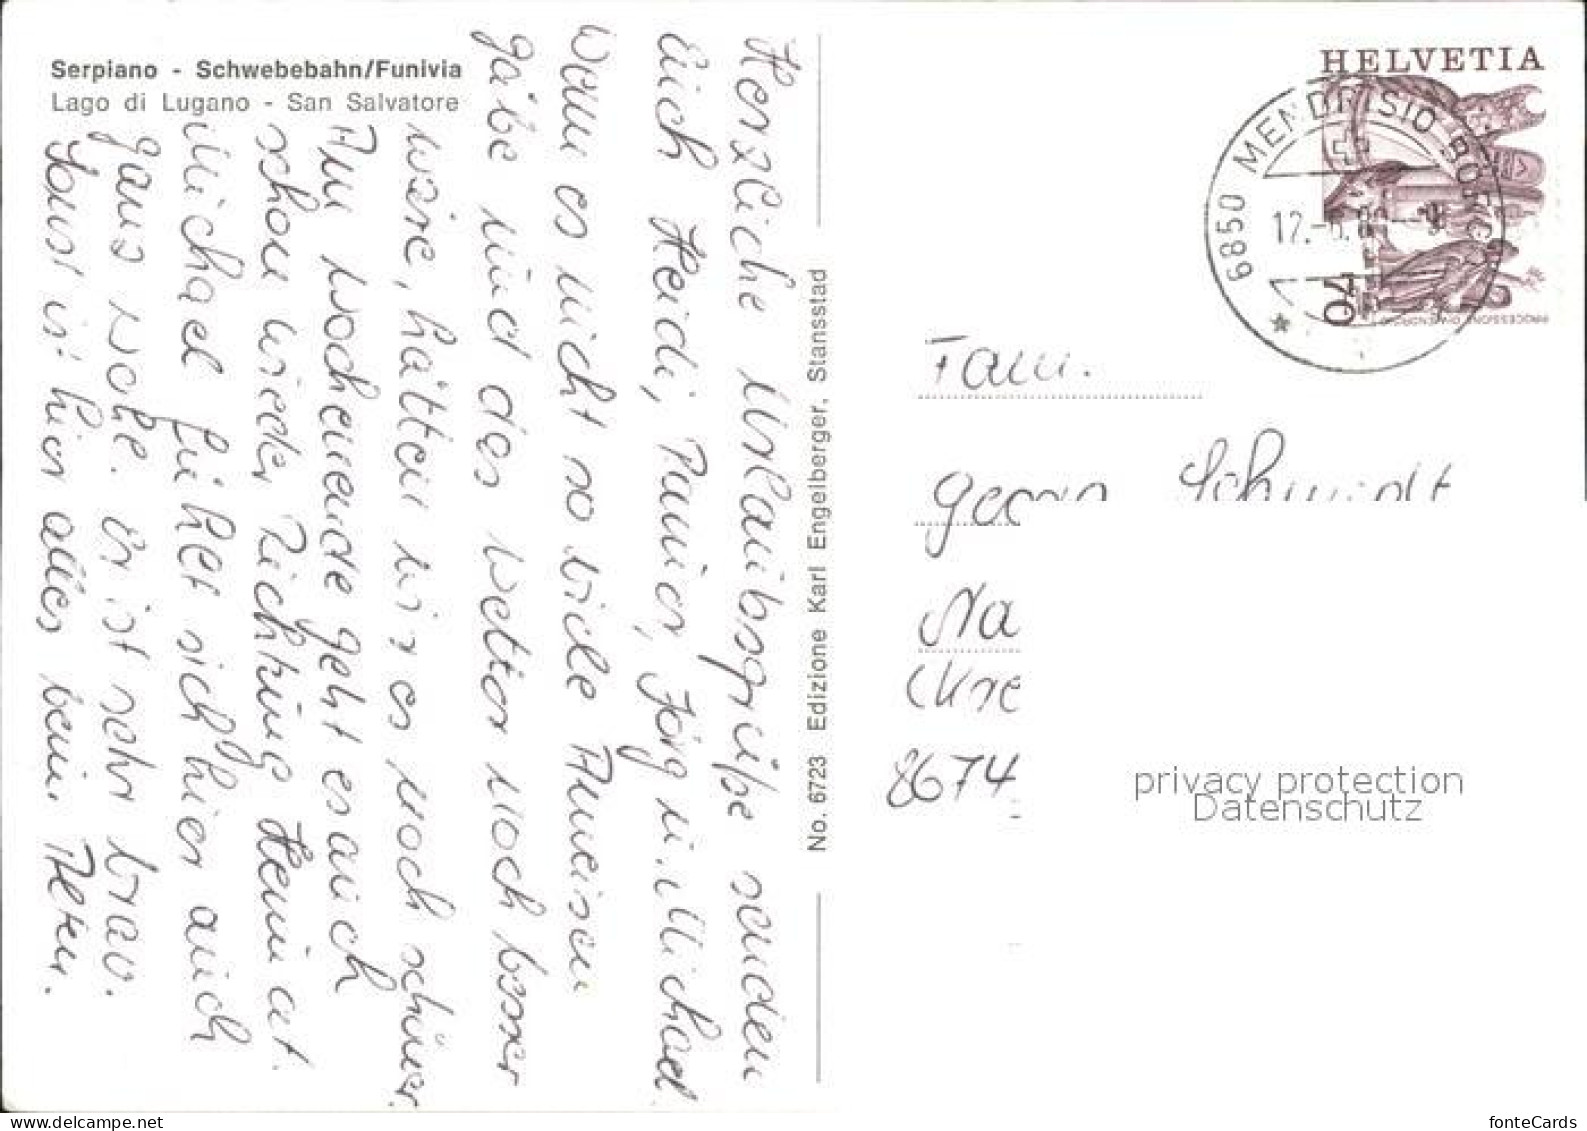 Serpiano - Schwebebahn/Funivia
Lago di Lugano - San Salvatore
Herzliche Urlaubsgrüße senden
Euch Heidi, Rainer, Jörg u. Michael
Wenn es nicht so viele Ameisen
gäbe und das Wetter noch besser
wäre, hätten wir es noch schöner.
Am Wochenende geht es auch
schon wieder Richtung Heimat.
Michael fühlt sich hier auch
ganz wohl. Er ist sehr brav.
Sonst ist hier alles beim Alten.
No. 6723 Edizione Karl Engelberger, Stansstad
HELVETIA
6850 MENDRISIO BORGO
70
PROCESSIONI DI MENDRISIO
Fam.
Georg Schmidt
Na
8674
privacy protection
Datenschutz
fonteCards